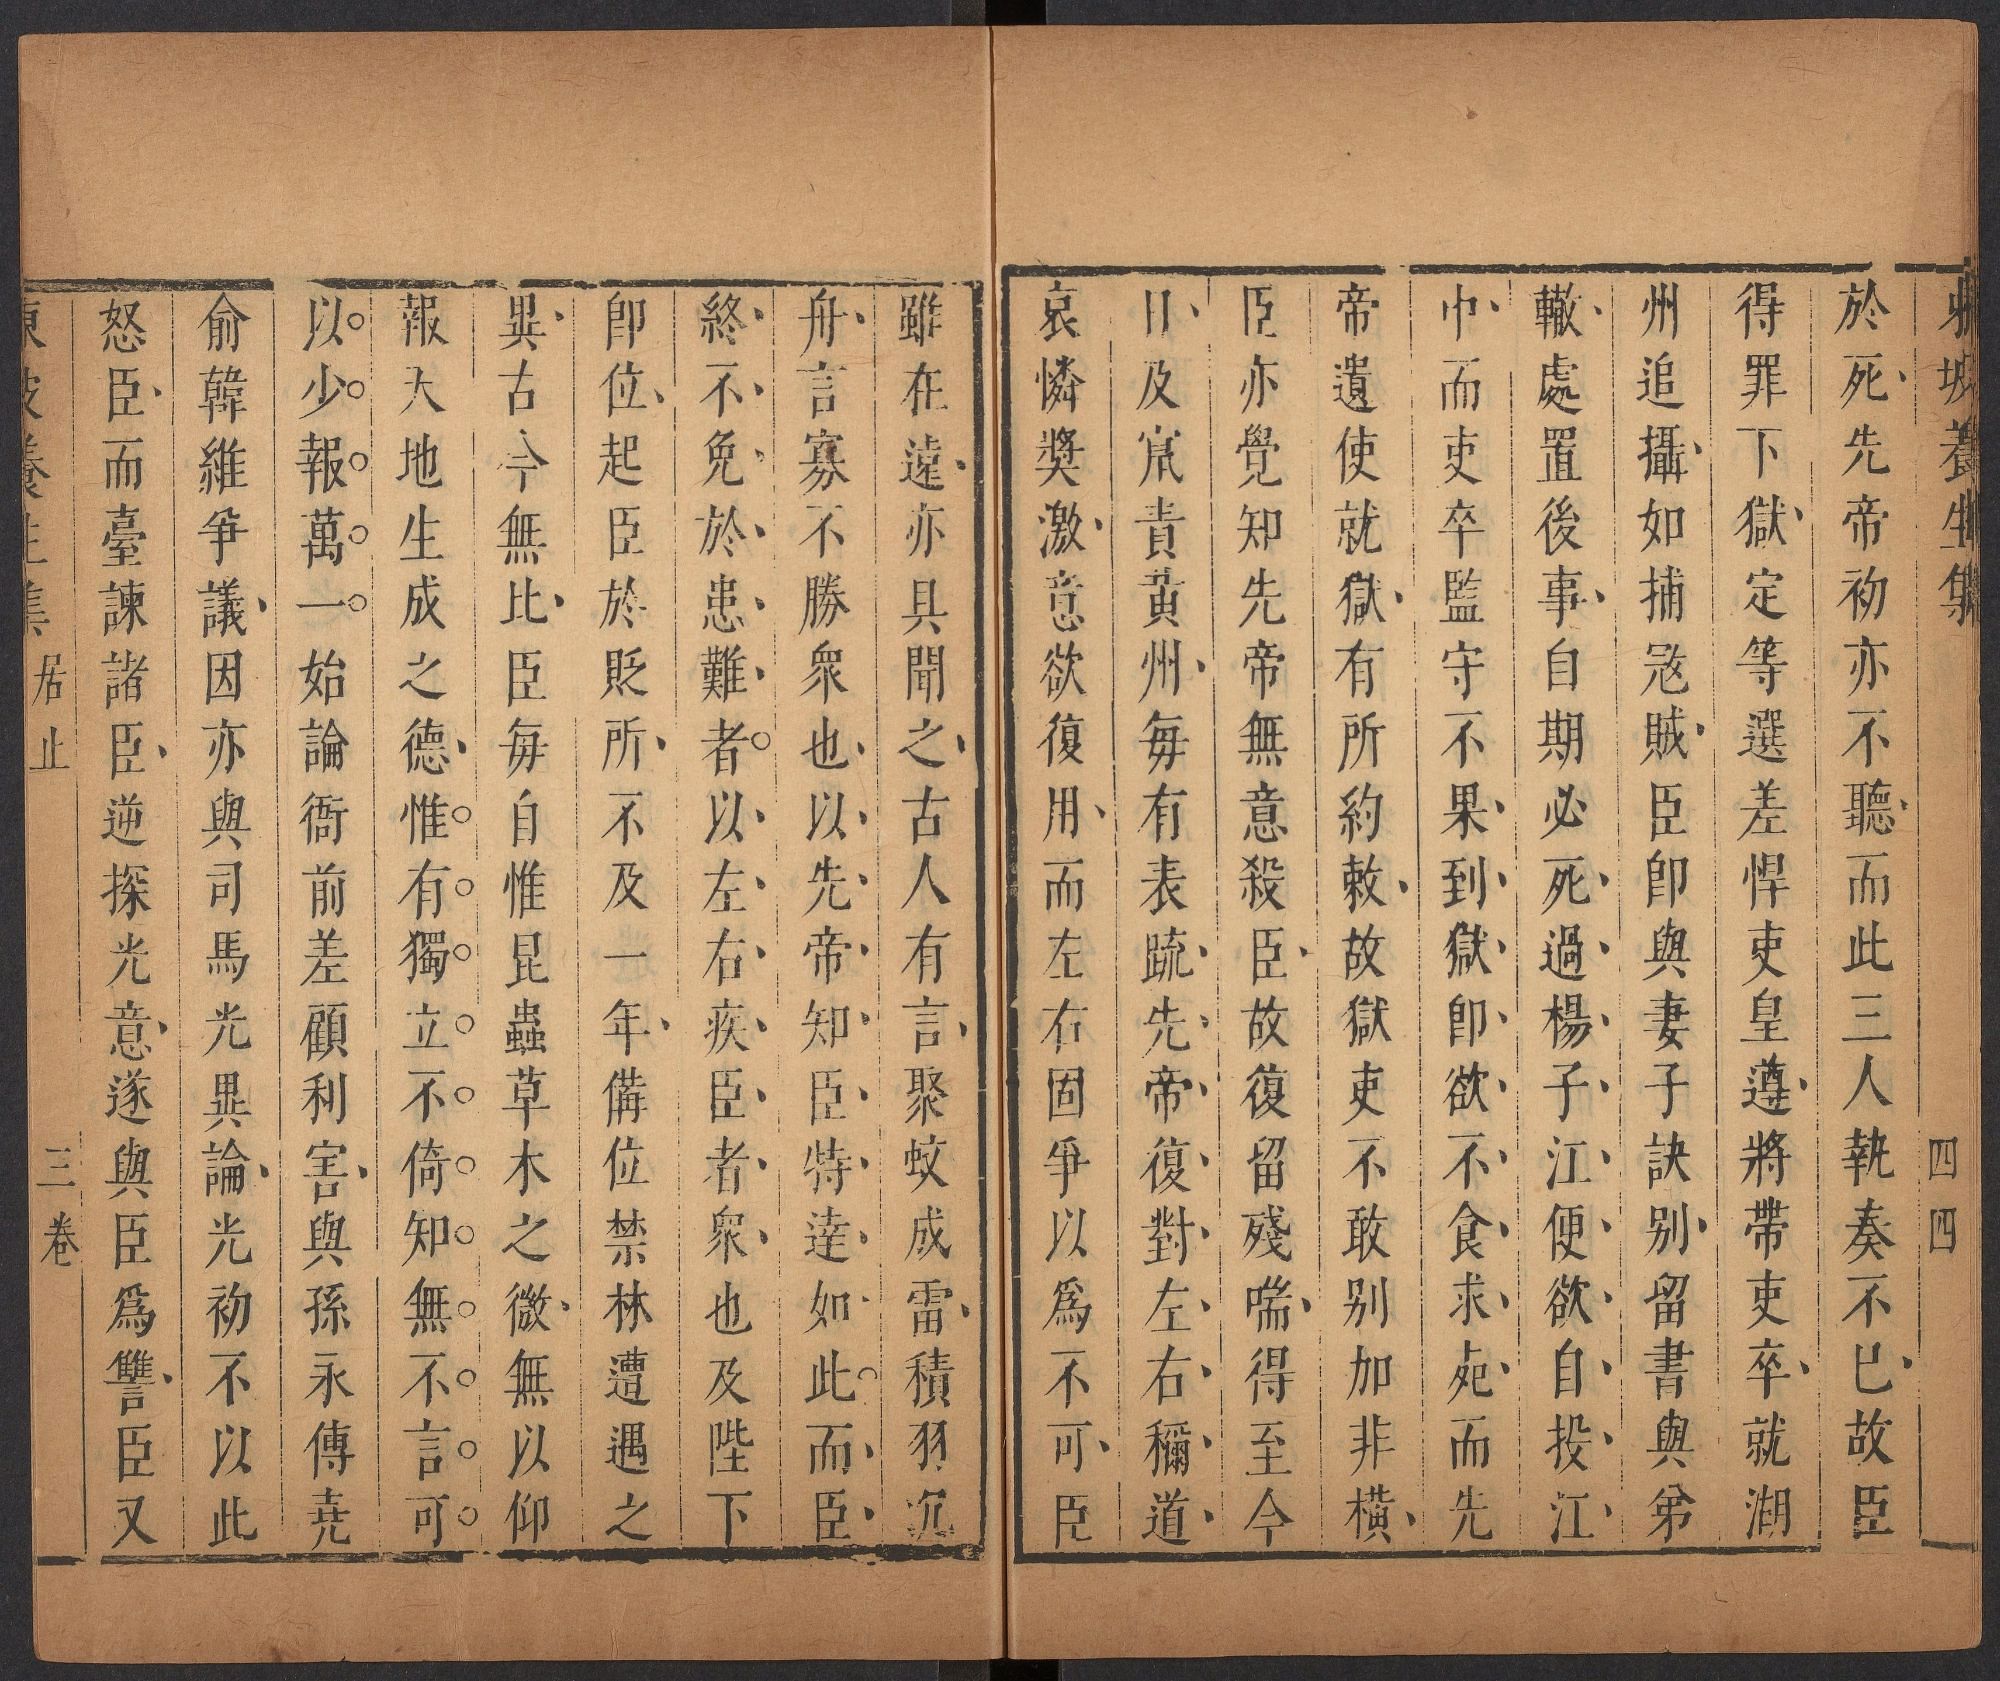 東坡養生集 四四
於死先帝初亦不聽而此三人執奏不已故臣
得罪下獄定等選差悍吏皇遵將帶吏卒就湖
州追攝如捕寇賊臣卽與妻子訣别留書與弟
轍處置後事自期必死過楊子江便欲自投江
中而吏卒監守不果到獄卽欲不食求死而先
帝遺使就獄有所約敕故獄吏不敢别加非横
臣亦覺知先帝無意殺臣故復留殘喘得至今
日及竄責黃州每有表疏先帝復對左右稱道
哀憐獎激意欲復用而左右固爭以爲不可臣
雖在遠亦具聞之古人有言聚蚊成雷積羽沉
舟言寡不勝衆也以先帝知臣特達如此而臣
終不免於患難者以左右疾臣者衆也及陛下
卽位起臣於貶所不及一年備位禁林遭遇之
異古今無比臣每自惟昆蟲草木之微無以仰
報天地生成之德惟有獨立不倚知無不言可
以少報萬一始論衙前差顧利害與孫永傅堯
俞韓維爭議因亦與司馬光異論光初不以此
怒臣而臺諫諸臣逆探光意遂與臣爲讐臣又
東坡養生集 居止 三卷